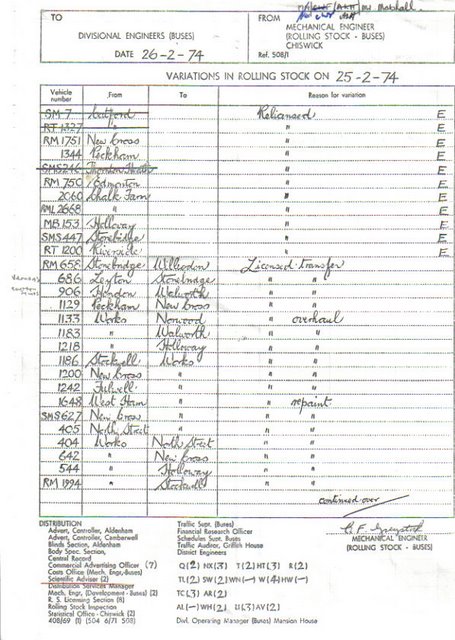 TO
DIVISIONAL ENGINEERS (BUSES)
DATE 26-2-74
FROM
MECHANICAL ENGINEER
(ROLLING STOCK - BUSES)
CHISWICK
Ref. 508/1
VARIATIONS IN ROLLING STOCK ON 25-2-74
Vehicle number From To Reason for variation
SM 7 Catford Relicensed E
RT 1327 " " E
RM 1751 New Cross " E
1344 Peckham " E
SMS 246 Thornton Heath " E
RM 750 Edmonton " E
2060 Chalk Farm " E
RML 2668 " " E
MB 153 Holloway " E
SMS 447 Stonebridge " E
RT 1200 Riverside " E
RM 658 Stonebridge Willesden Licensed transfer
686 Leyton Stonebridge " "
906 Hendon Walworth " "
1129 Peckham New Cross " "
1133 Works Norwood " overhaul
1183 " Walworth " "
1218 " Holloway " "
1186 Stockwell Works " "
1200 New Cross " " "
1242 Fulwell " " "
1648 West Ham " " repaint
SMS 627 New Cross " " "
405 North Street " " "
404 Works North Street " "
642 " New Cross " "
544 " Holloway " "
RM 1994 " Stockwell " "
continued over
DISTRIBUTION
Advert, Controller, Aldenham
Advert, Controller, Camberwell
Blinds Section, Aldenham
Body Spec. Section,
Central Record
Commercial Advertising Officer (7)
Costs Office (Mech, Engr,-Buses)
Scientific Adviser (2)
Distribution Services Manager
Mech. Engr, (Development - Buses) (2)
R. S. Licensing Section (8)
Rolling Stock Inspection
Statistical Office - Chiswick (2)
408/69 (1) (504 6/71 508)
Traffic Supt. (Buses)
Financial Research Officer
Schedules Supt. Buses
Traffic Auditor, Griffith House
District Engineers
Q(2) NX(3) T(2) HT(3) R(2)
TL(2) SW(2) WN(-) W(4) HW(-)
TC(3) AR(2)
AL(-) WH(2) U(3) AV(2)
Divl. Operating Manager (Buses) Mansion House
MECHANICAL ENGINEER
(ROLLING STOCK - BUSES)